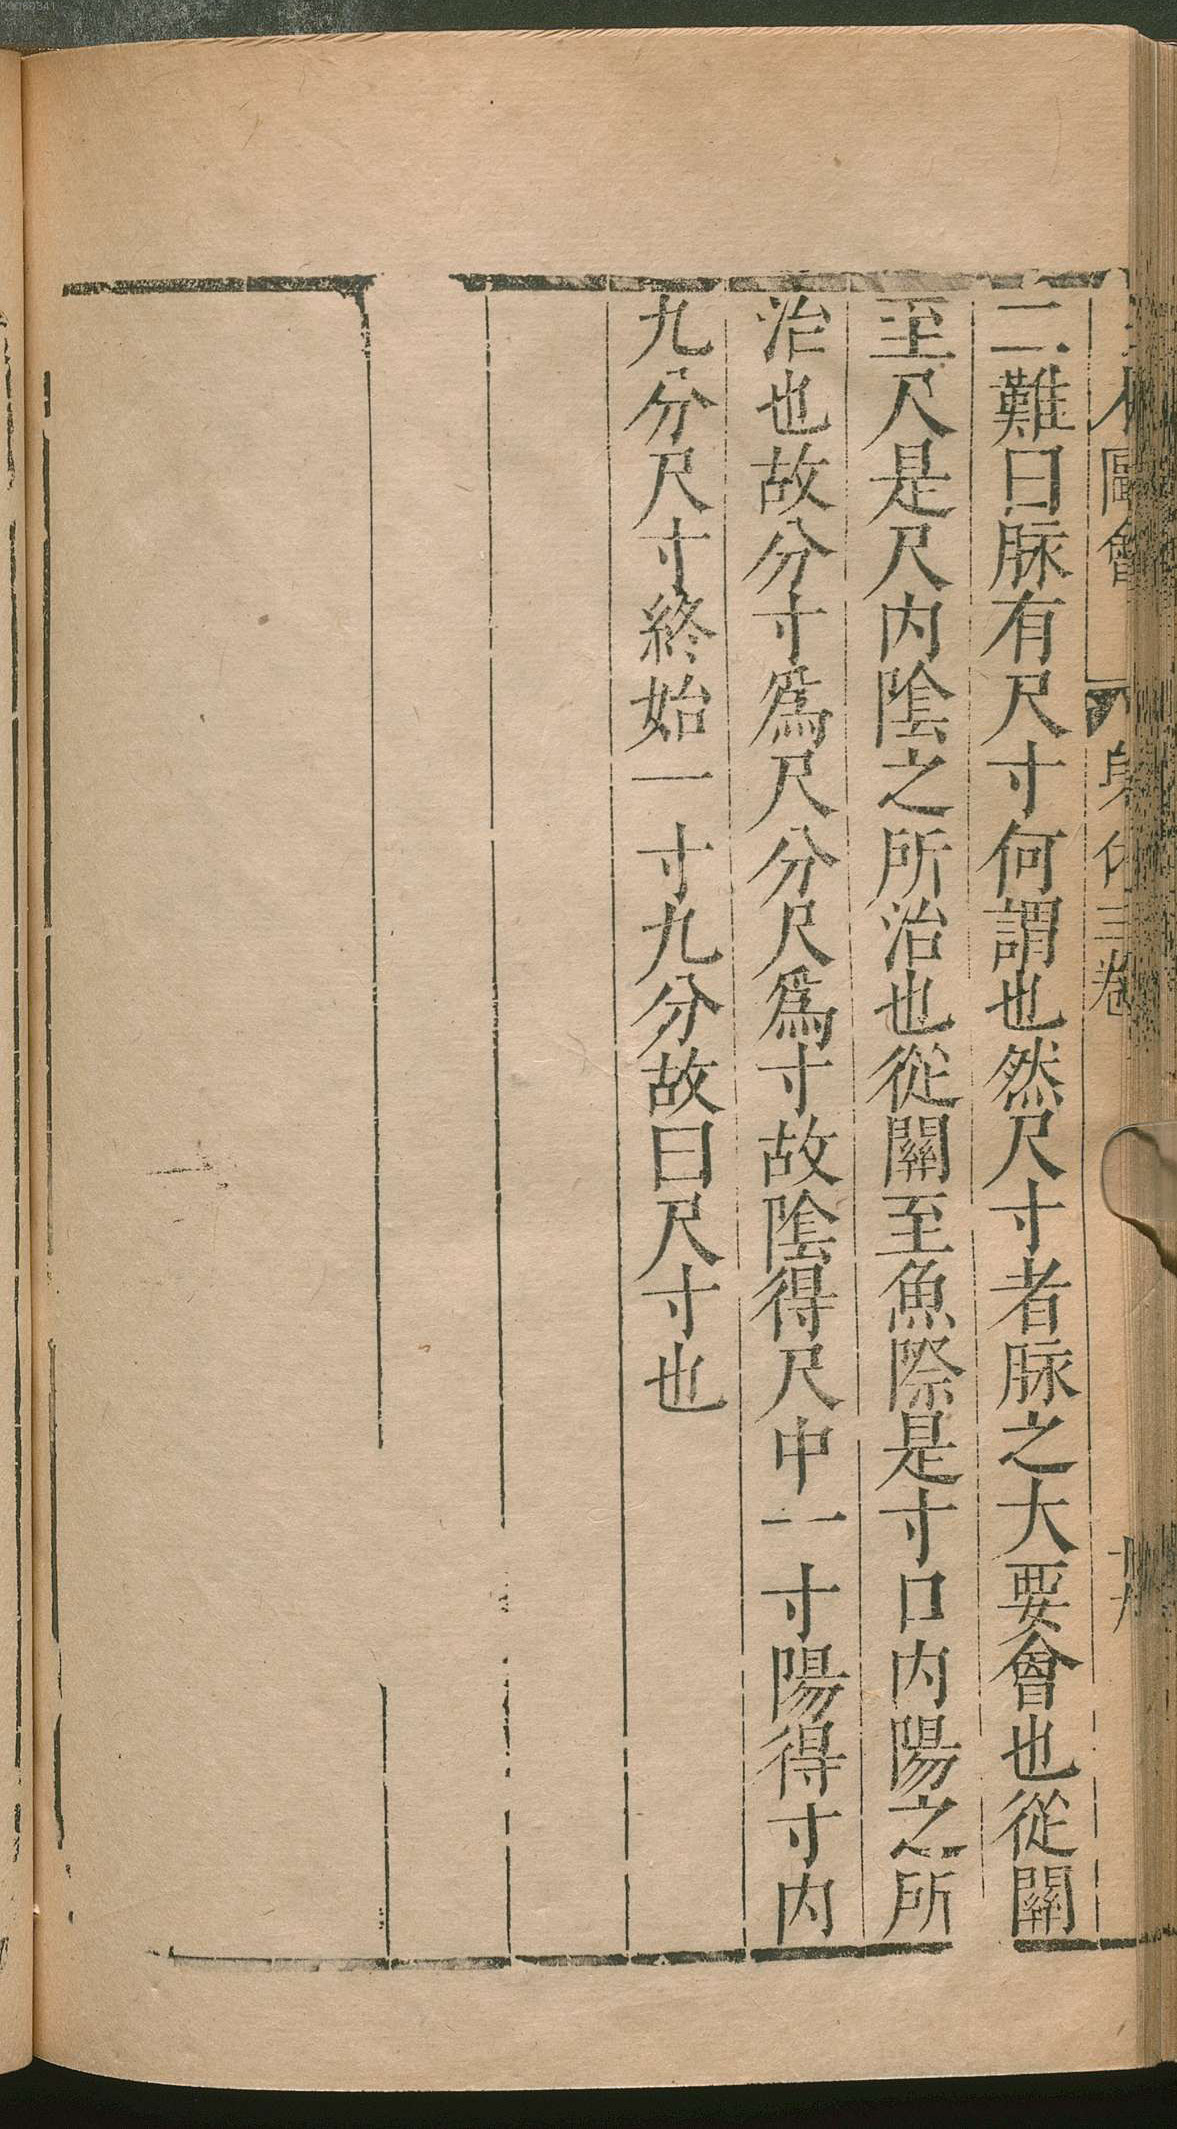 圖會 身体三卷
二難曰脉有尺寸何謂也然尺寸者脉之大要會也從關
至尺是尺内陰之所治也從關至魚際是寸口内陽之所
治也故分寸爲尺分尺爲寸故陰得尺中一寸陽得寸内
九分尺寸終始一寸九分故曰尺寸也
00060341